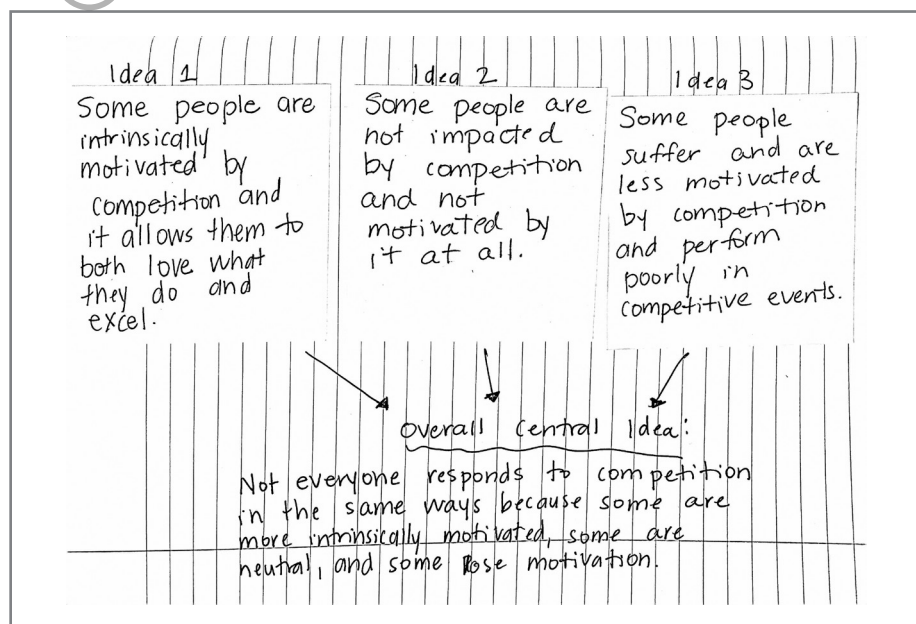 Idea 1
Some people are
intrinsically
motivated by
competition and
it allows them to
both love what
they do and
excel.
Idea 2
Some people are
not impacted
by competition
and not
motivated by
it at all.
Idea 3
Some people
suffer and are
less motivated
by competition
and perform
poorly in
competitive events.
Overall Central Idea:
Not everyone responds to competition
in the same ways because some are
more intrinsically motivated, some are
neutral, and some lose motivation.